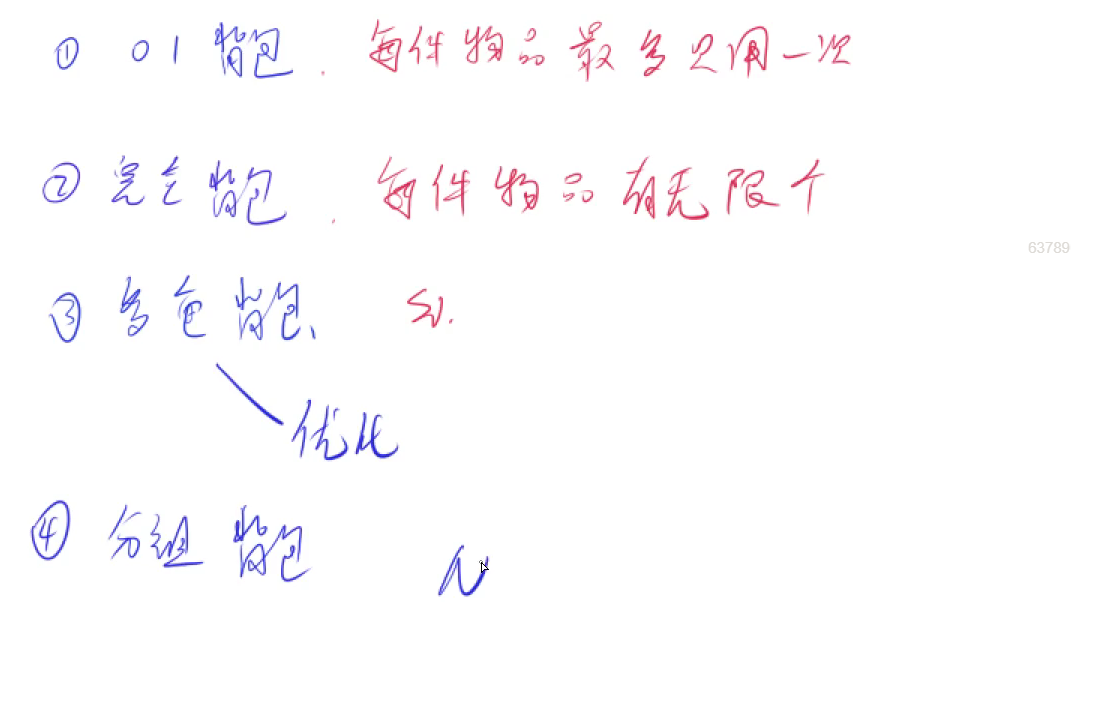 ① 01背包. 每件物品最多只用一次
② 完全背包. 每件物品有无限个
63789
③ 多重背包、 Si.
优化
④ 分组背包 N